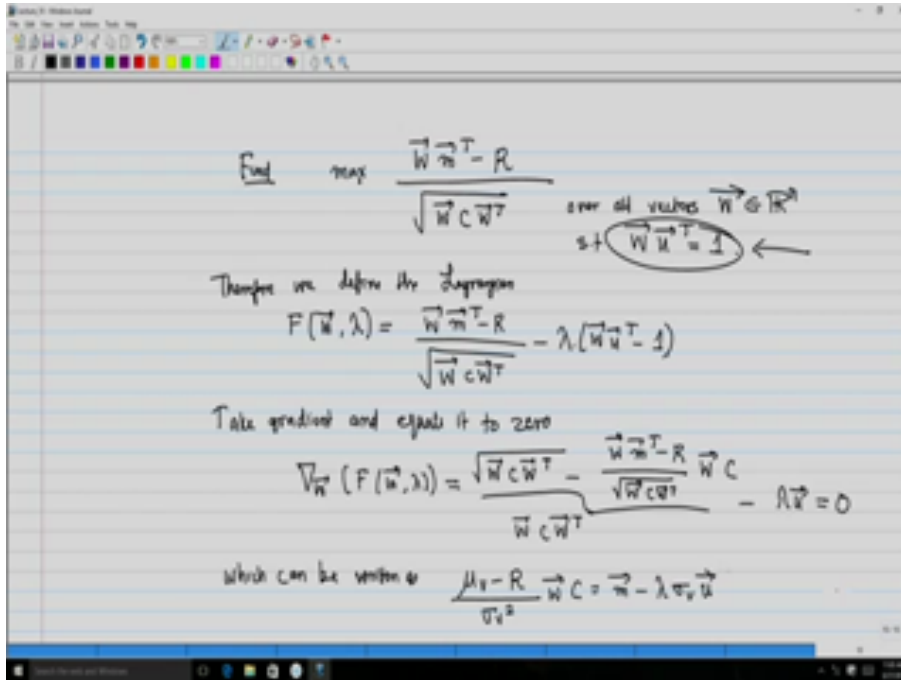 Find max (w⃗ m⃗ᵀ - R) / √(w⃗ C w⃗ᵀ)
over all vectors w⃗ ∈ ℝⁿ
s.t w⃗ u⃗ᵀ = 1.
Therefore we define the Lagrangian
F(w⃗, λ) = (w⃗ m⃗ᵀ - R) / √(w⃗ C w⃗ᵀ) - λ(w⃗ u⃗ᵀ - 1)
Take gradient and equate it to zero
∇w⃗ (F(w⃗, λ)) = (√(w⃗ C w⃗ᵀ) - (w⃗ m⃗ᵀ - R) / √(w⃗ C w⃗ᵀ) w⃗ C) / (w⃗ C w⃗ᵀ) - λu⃗ = 0
which can be written as (μᵥ - R) / σᵥ² w⃗ C = m⃗ - λ σᵥ u⃗